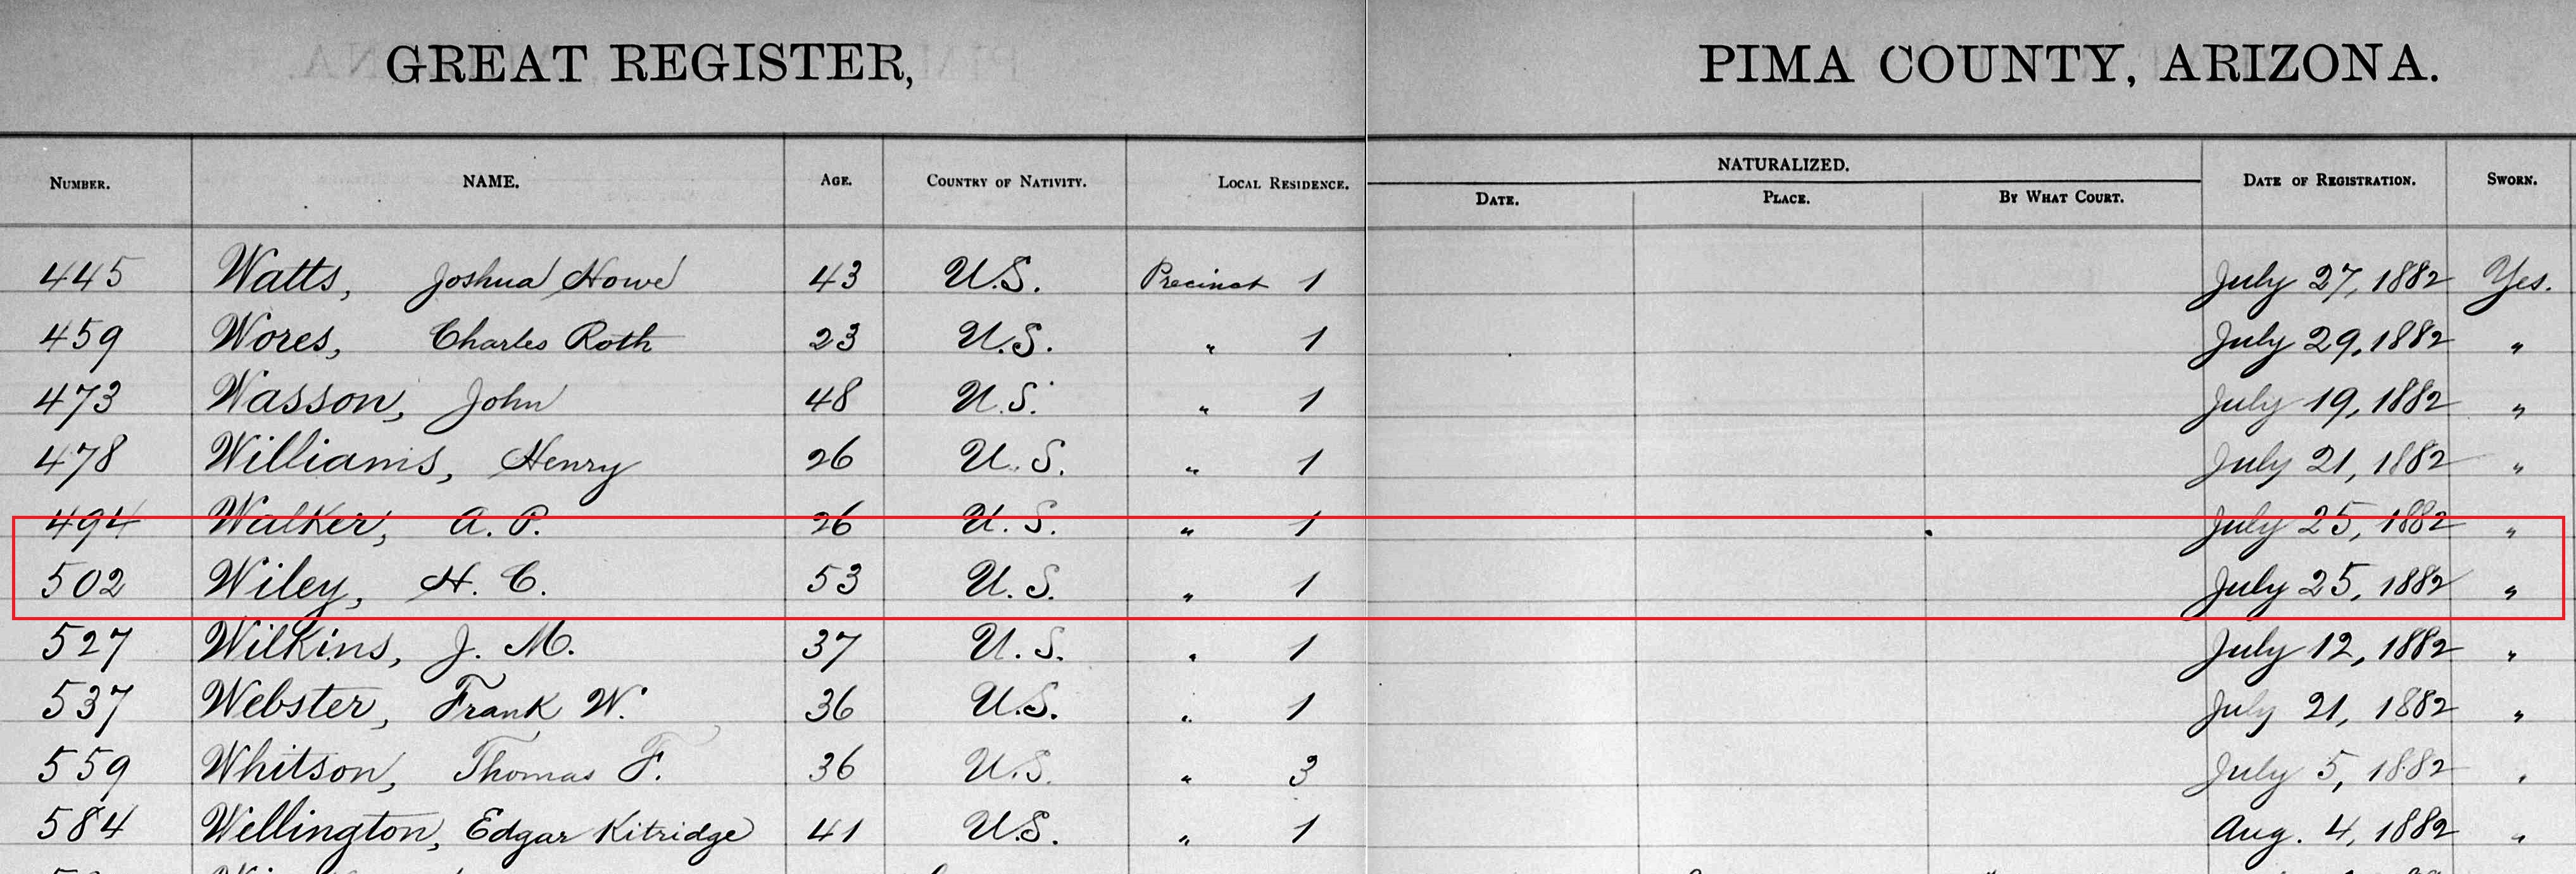 GREAT REGISTER, PIMA COUNTY, ARIZONA.
NUMBER. NAME. AGE. COUNTRY OF NATIVITY. LOCAL RESIDENCE. NATURALIZED. DATE OF REGISTRATION. SWORN.
DATE. PLACE. BY WHAT COURT.
445 Watts, Joshua Howe 43 U.S. Precinct 1 July 27, 1882 Yes.
459 Wores, Charles Roth 23 U.S. " 1 July 29, 1882 "
473 Wasson, John 48 U.S. " 1 July 19, 1882 "
478 Williams, Henry 26 U.S. " 1 July 21, 1882 "
494 Walker, A. P. 26 U.S. " 1 July 25, 1882 "
502 Wiley, H. C. 53 U.S. " 1 July 25, 1882 "
527 Wilkins, J. M. 37 U.S. " 1 July 12, 1882 "
537 Webster, Frank W. 36 U.S. " 1 July 21, 1882 "
559 Whitson, Thomas F. 36 U.S. " 3 July 5, 1882 "
584 Wellington, Edgar Kitridge 41 U.S. " 1 Aug. 4, 1882 "